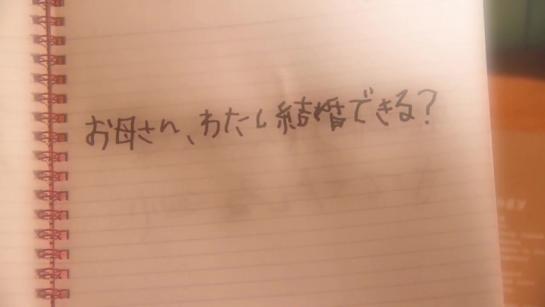 お母さん、わたし結婚できる?